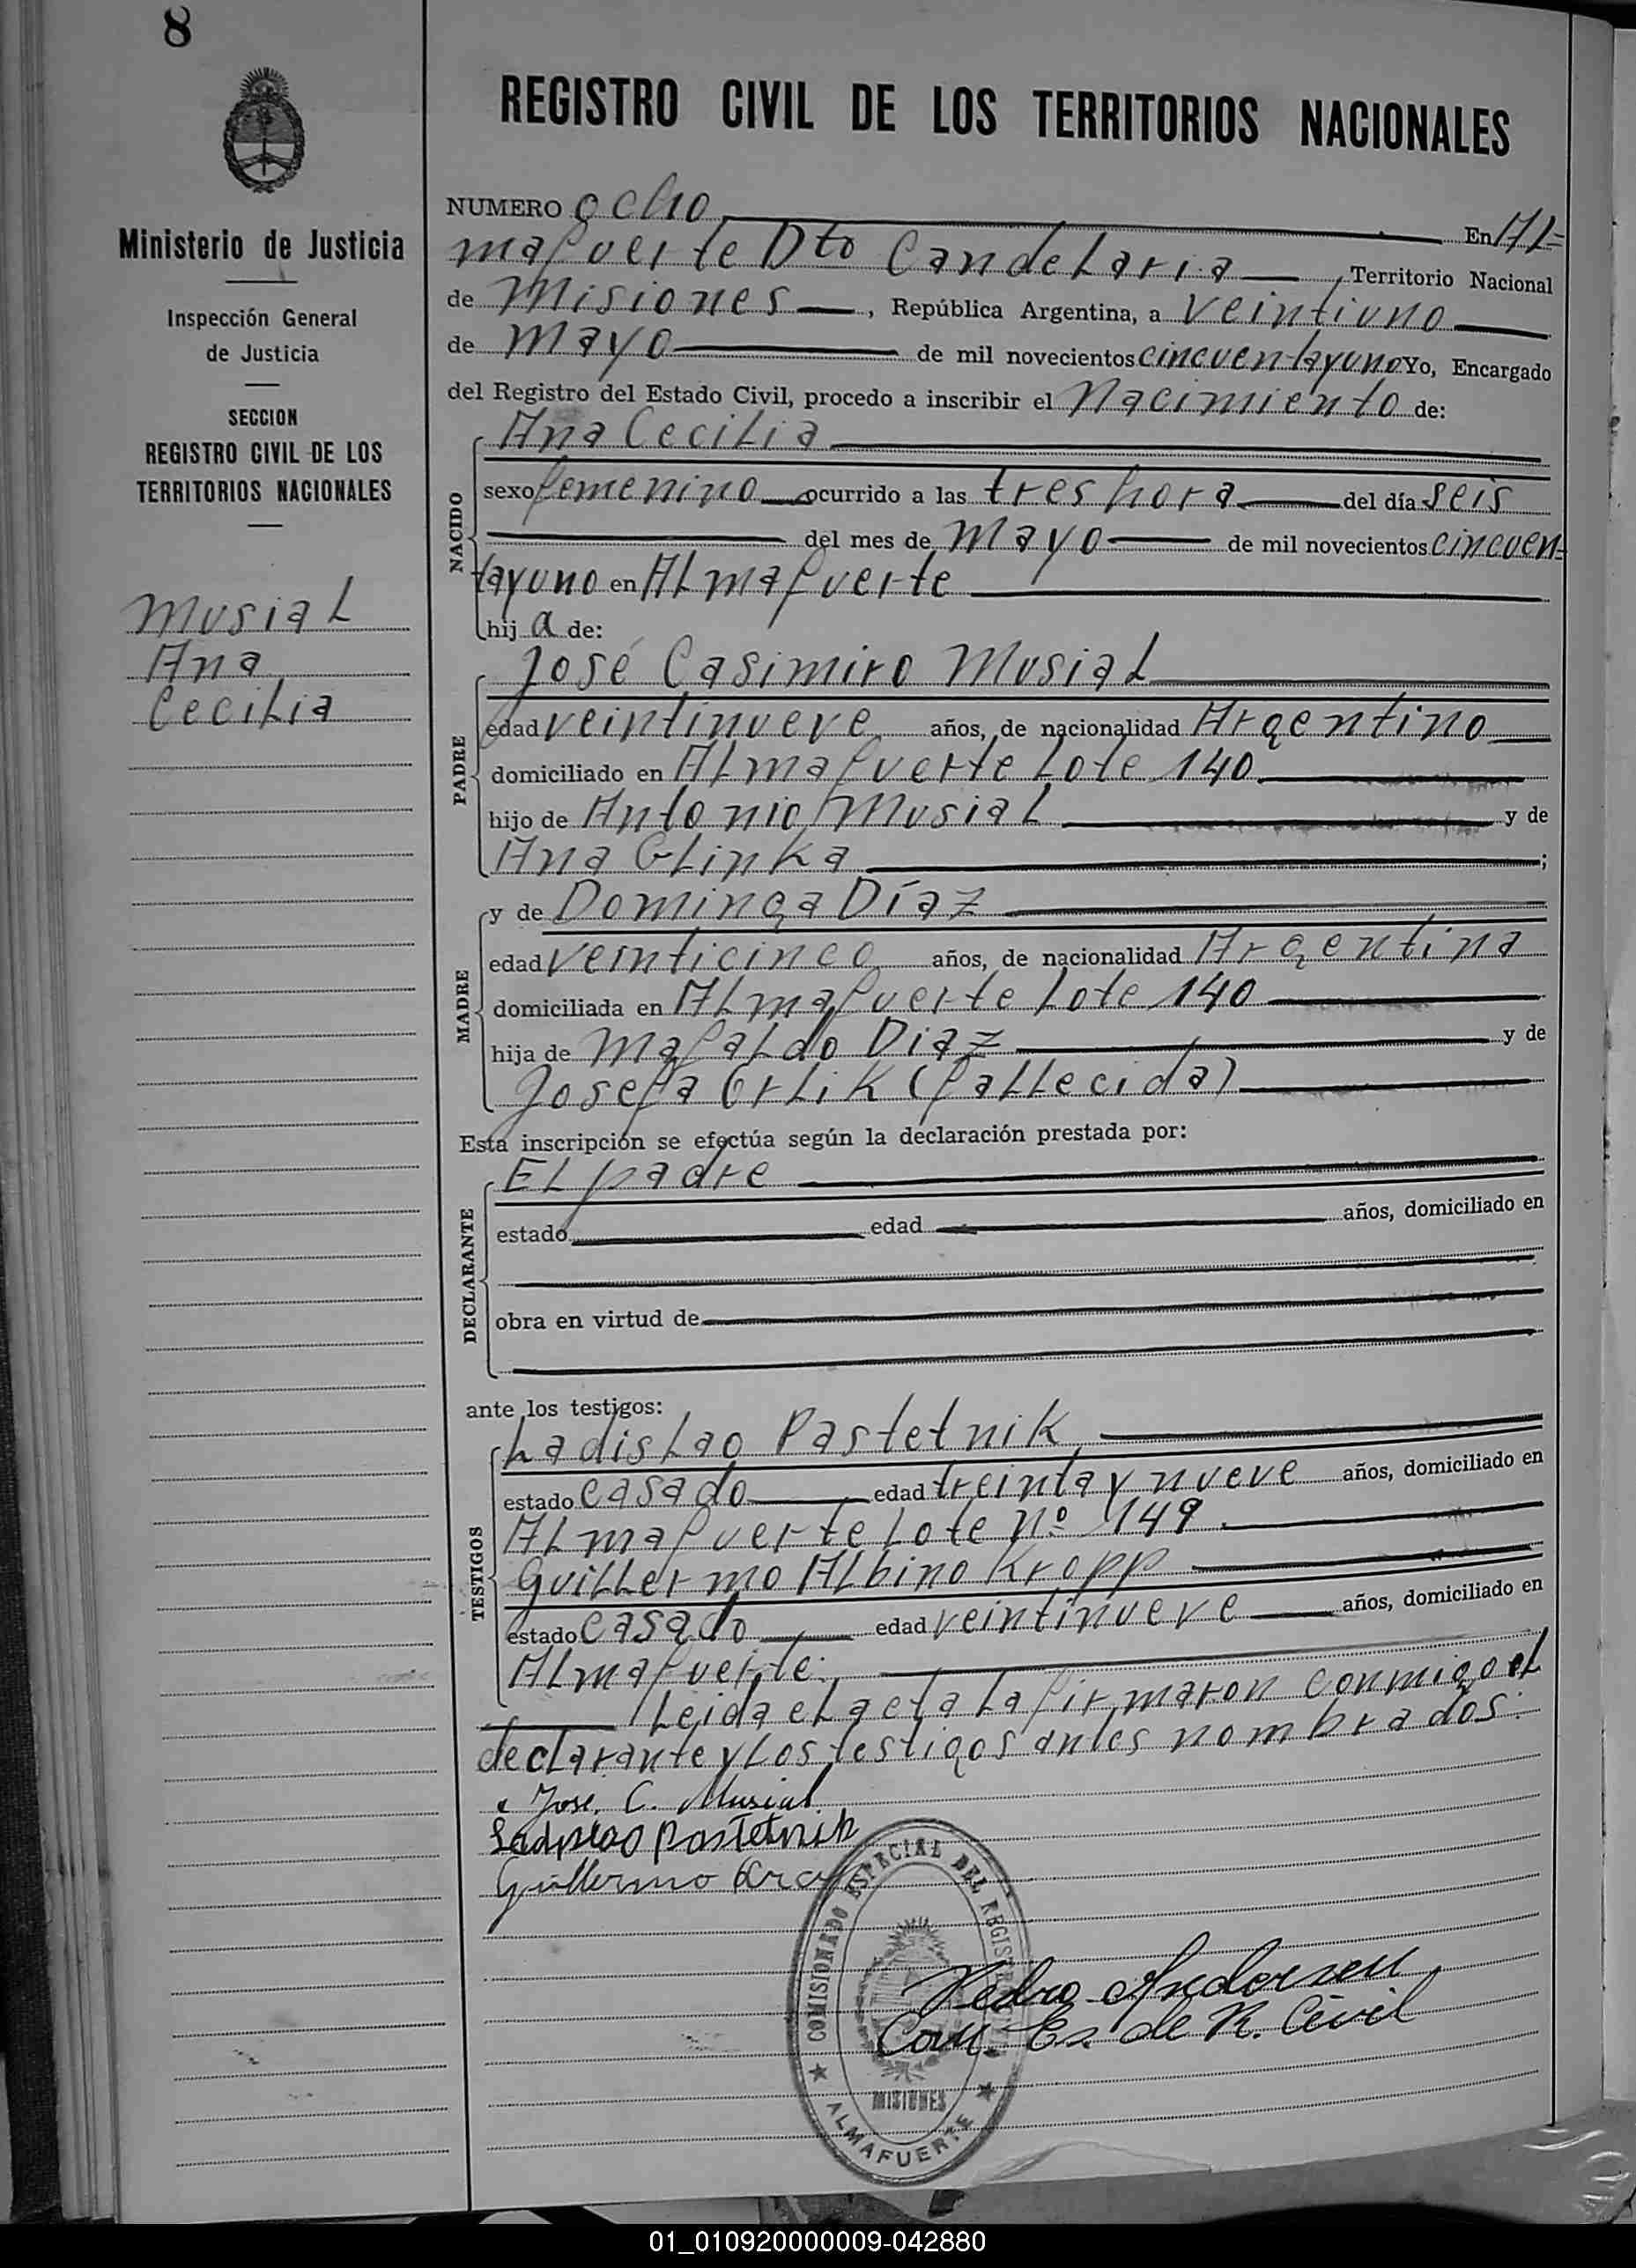 8
REGISTRO CIVIL DE LOS TERRITORIOS NACIONALES
Ministerio de Justicia
Inspección General
de Justicia
SECCION
REGISTRO CIVIL DE LOS
TERRITORIOS NACIONALES
Musial
Ana
Cecilia
NUMERO ocho En Al=
mafuerte Dto Candelaria, Territorio Nacional
de Misiones, República Argentina, a veintiuno
de mayo de mil novecientos cincuentayuno Yo, Encargado
del Registro del Estado Civil, procedo a inscribir el Nacimiento de:
NACIDO
Ana Cecilia
sexo femenino ocurrido a las tres hora del día seis
del mes de mayo de mil novecientos cincuen=
tayuno en Almafuerte
hija de:
PADRE
José Casimiro Musial
edad veintinueve años, de nacionalidad Argentino
domiciliado en Almafuerte Lote 140
hijo de Antonio Musial y de
Ana Glinka;
MADRE
y de Dominga Díaz
edad veinticinco años, de nacionalidad Argentina
domiciliada en Almafuerte Lote 140
hija de Mafaldo Diaz y de
Josefa Orlik (fallecida)
Esta inscripción se efectúa según la declaración prestada por:
DECLARANTE
El padre
estado edad años, domiciliado en
obra en virtud de
ante los testigos:
TESTIGOS
Ladislao Pastetnik
estado casado edad treinta y nueve años, domiciliado en
Almafuerte Lote Nº 149
Guillermo Albino Kropp
estado casado edad veintinueve años, domiciliado en
Almafuerte.
Leida el acta la firmaron conmigo el
declarante y los testigos antes nombrados.
Jose. C. Musial
Ladislao Pastetnik
Guillermo
COMISIONADO ESPECIAL DEL REGISTRO
MISIONES
ALMAFUERTE
Pedro Andersen
Com. Es. de R. Civil
01_010920000009-042880